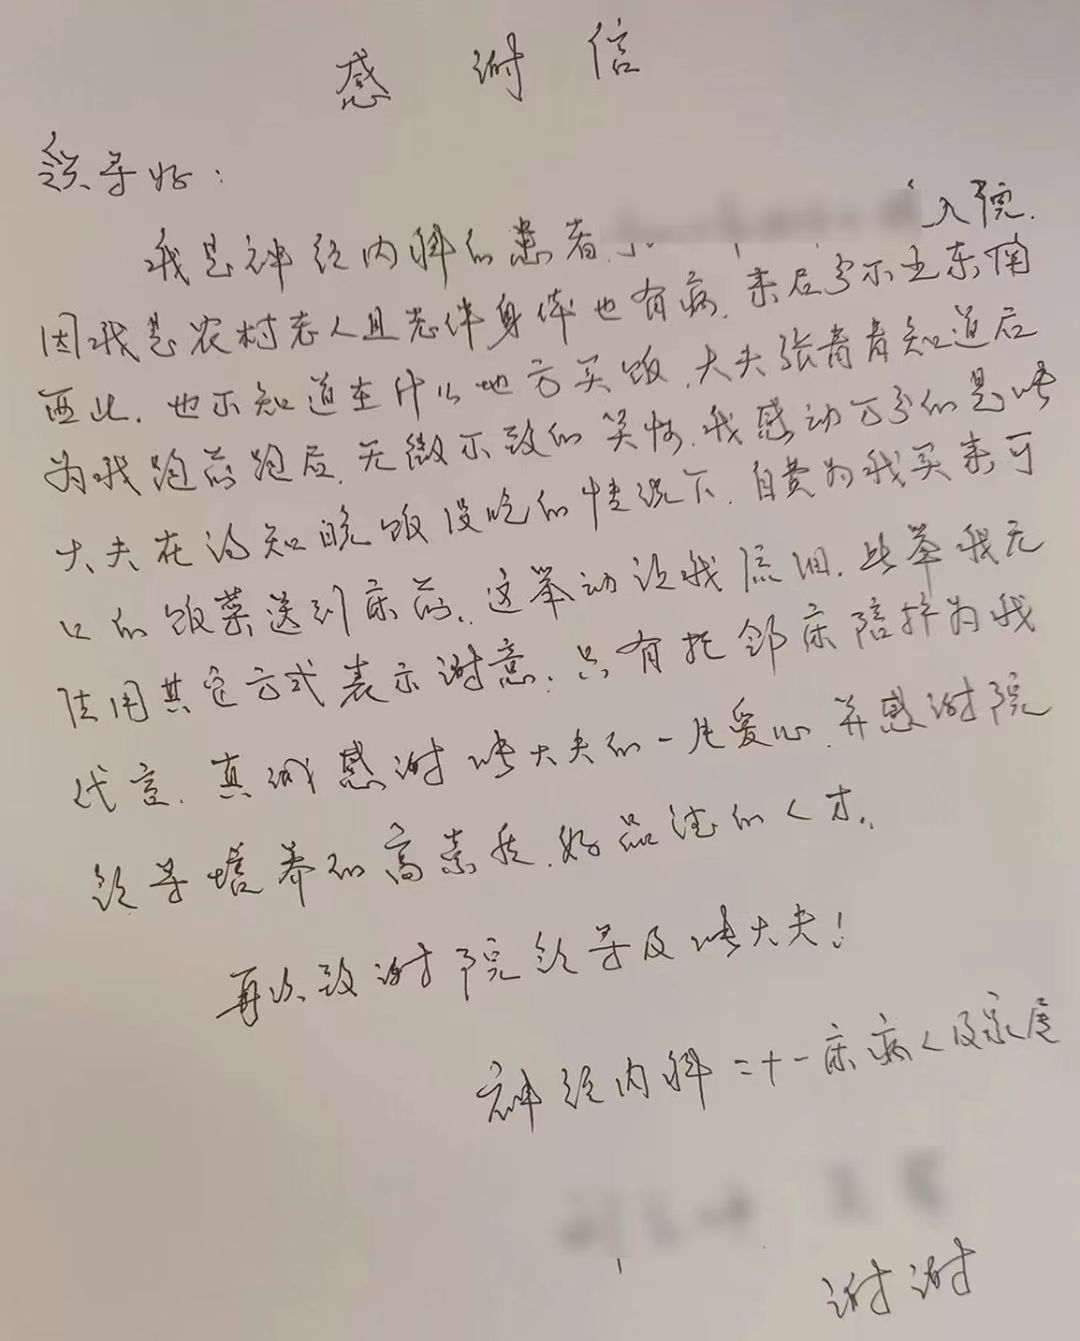 感谢信
领导好：
我是神经内科的患者 入院.
因我是农村老人且老伴身体也有病.来后分不出东南
西北.也不知道在什么地方买饭.大夫张青青知道后
为我跑前跑后.无微不致的关怀.我感动万分的是张
大夫在得知晚饭没吃的情况下.自费为我买来可
口的饭菜送到床前.这举动让我流泪.此举我无
法用其它方式表示谢意.只有托邻床陪护为我
代言.真诚感谢张大夫的一片爱心.并感谢院
领导培养的高素质.好品德的人才.
再次致谢院领导及张大夫！
神经内科二十一床病人及家属
谢谢